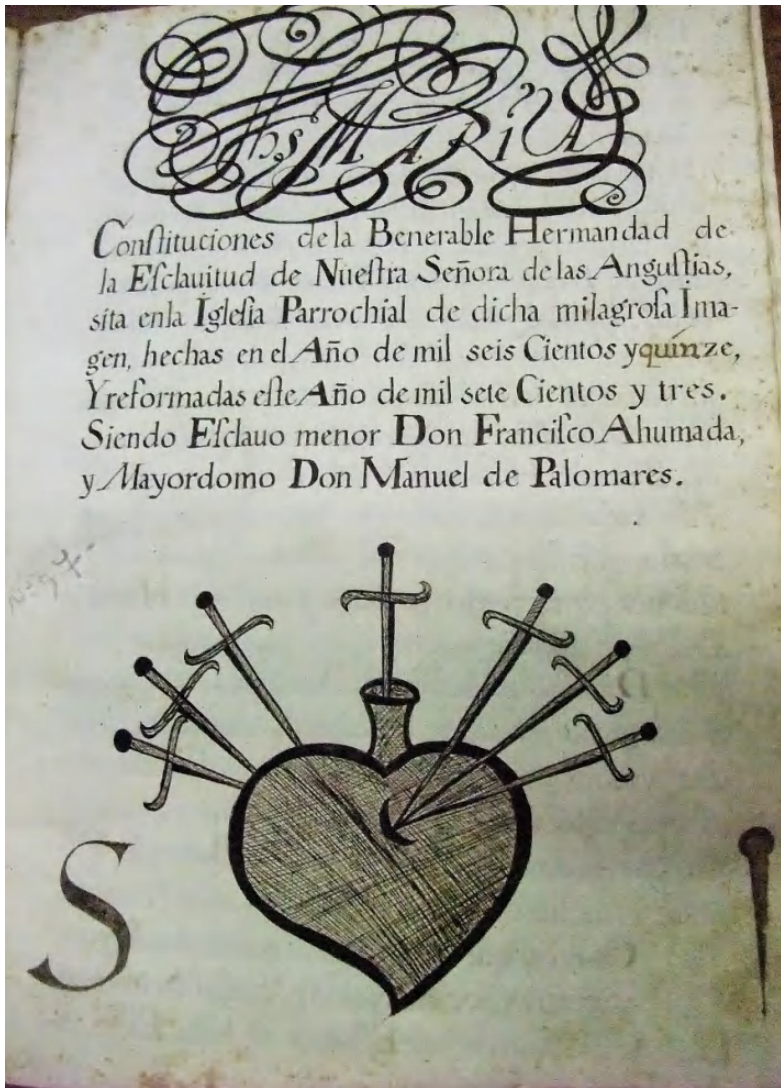 Jhs MARiA
Conſtituciones de la Benerable Hermandad de
la Eſclauitud de Nueſtra Señora de las Anguſtias,
sita enla Igleſia Parrochial de dicha milagroſa Ima-
gen, hechas en el Año de mil seis Cientos y quinze,
Y reformadas eſte Año de mil sete Cientos y tres.
Siendo Eſclauo menor Don Franciſco Ahumada,
y Mayordomo Don Manuel de Palomares.
S